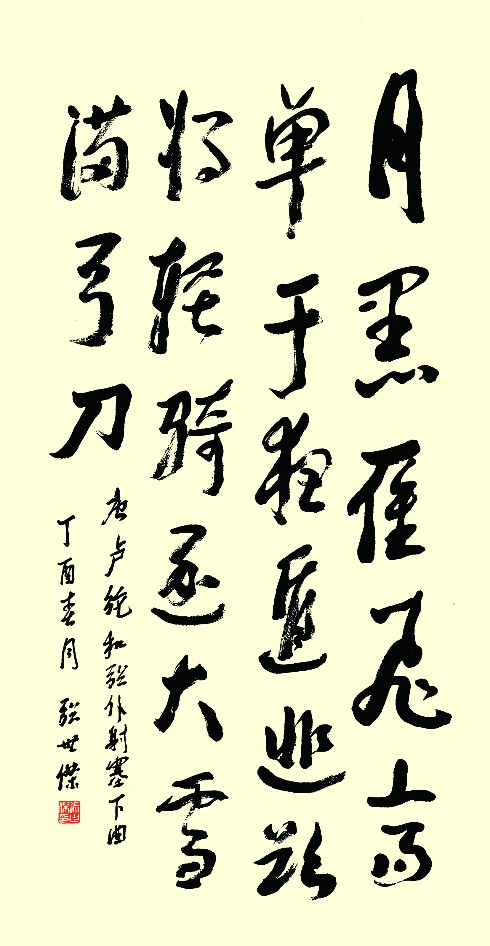 月黑雁飞高
单于夜遁逃欲
将轻骑逐大雪
满弓刀
唐卢纶和张仆射塞下曲
丁酉春月 张世傑